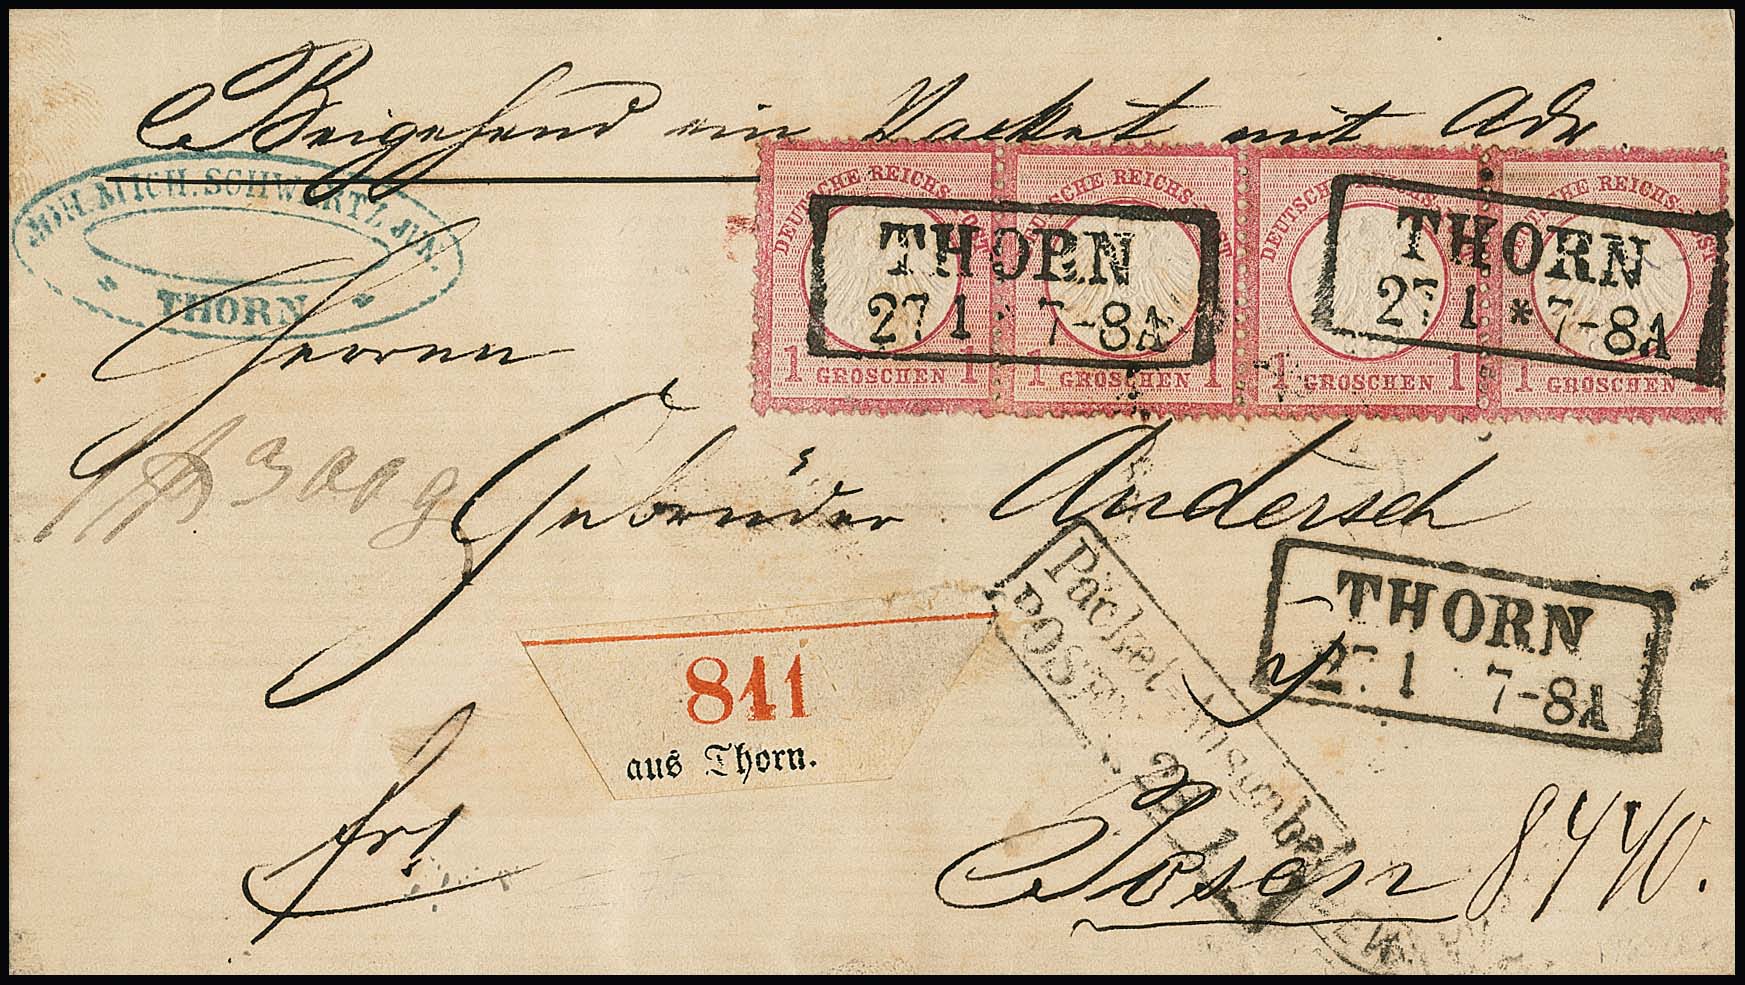 Beigehend ein Packet mit Adr.
JOH. MICH. SCHWARTZ JUN.
THORN
DEUTSCHE REICHS-POST DEUTSCHE REICHS-POST DEUTSCHE REICHS-POST DEUTSCHE REICHS-POST
1 GROSCHEN 1 1 GROSCHEN 1 1 GROSCHEN 1 1 GROSCHEN 1
THORN
27 1 * 7-8A
THORN
27 1 * 7-8A
Herren
300 g
Gebrüder Andersch
Päcket-Ausgabe
POSEN
28 1
THORN
27 1 7-8A
841
aus Thorn.
frs
Posen 8440.